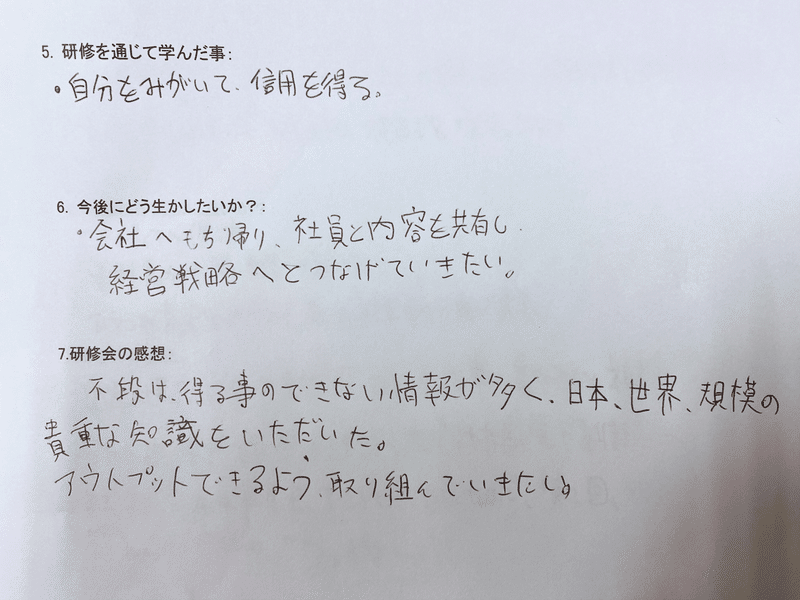 5. 研修を通じて学んだ事:
・自分をみがいて、信用を得る。
6. 今後にどう生かしたいか?:
・会社へもち帰り、社員と内容を共有し
経営戦略へとつなげていきたい。
7.研修会の感想:
不段は、得る事のできない情報が多く、日本、世界、規模の
貴重な知識をいただいた。
アウトプットできるよう、取り組んでいきたい。